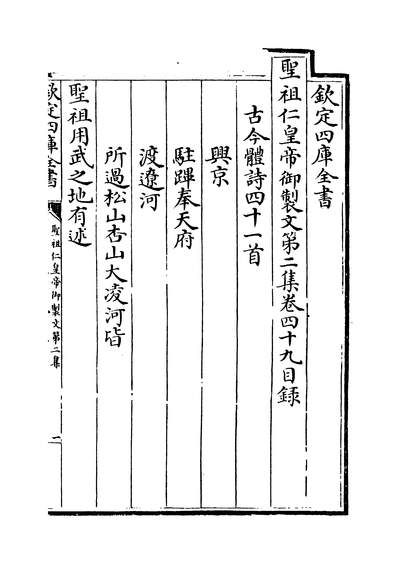 欽定四庫全書
聖祖仁皇帝御製文第二集卷四十九目録
古今體詩四十一首
興京
駐蹕奉天府
渡遼河
所過松山杏山大凌河皆
聖祖用武之地有述
欽定四庫全書
聖祖仁皇帝御製文第二集
一